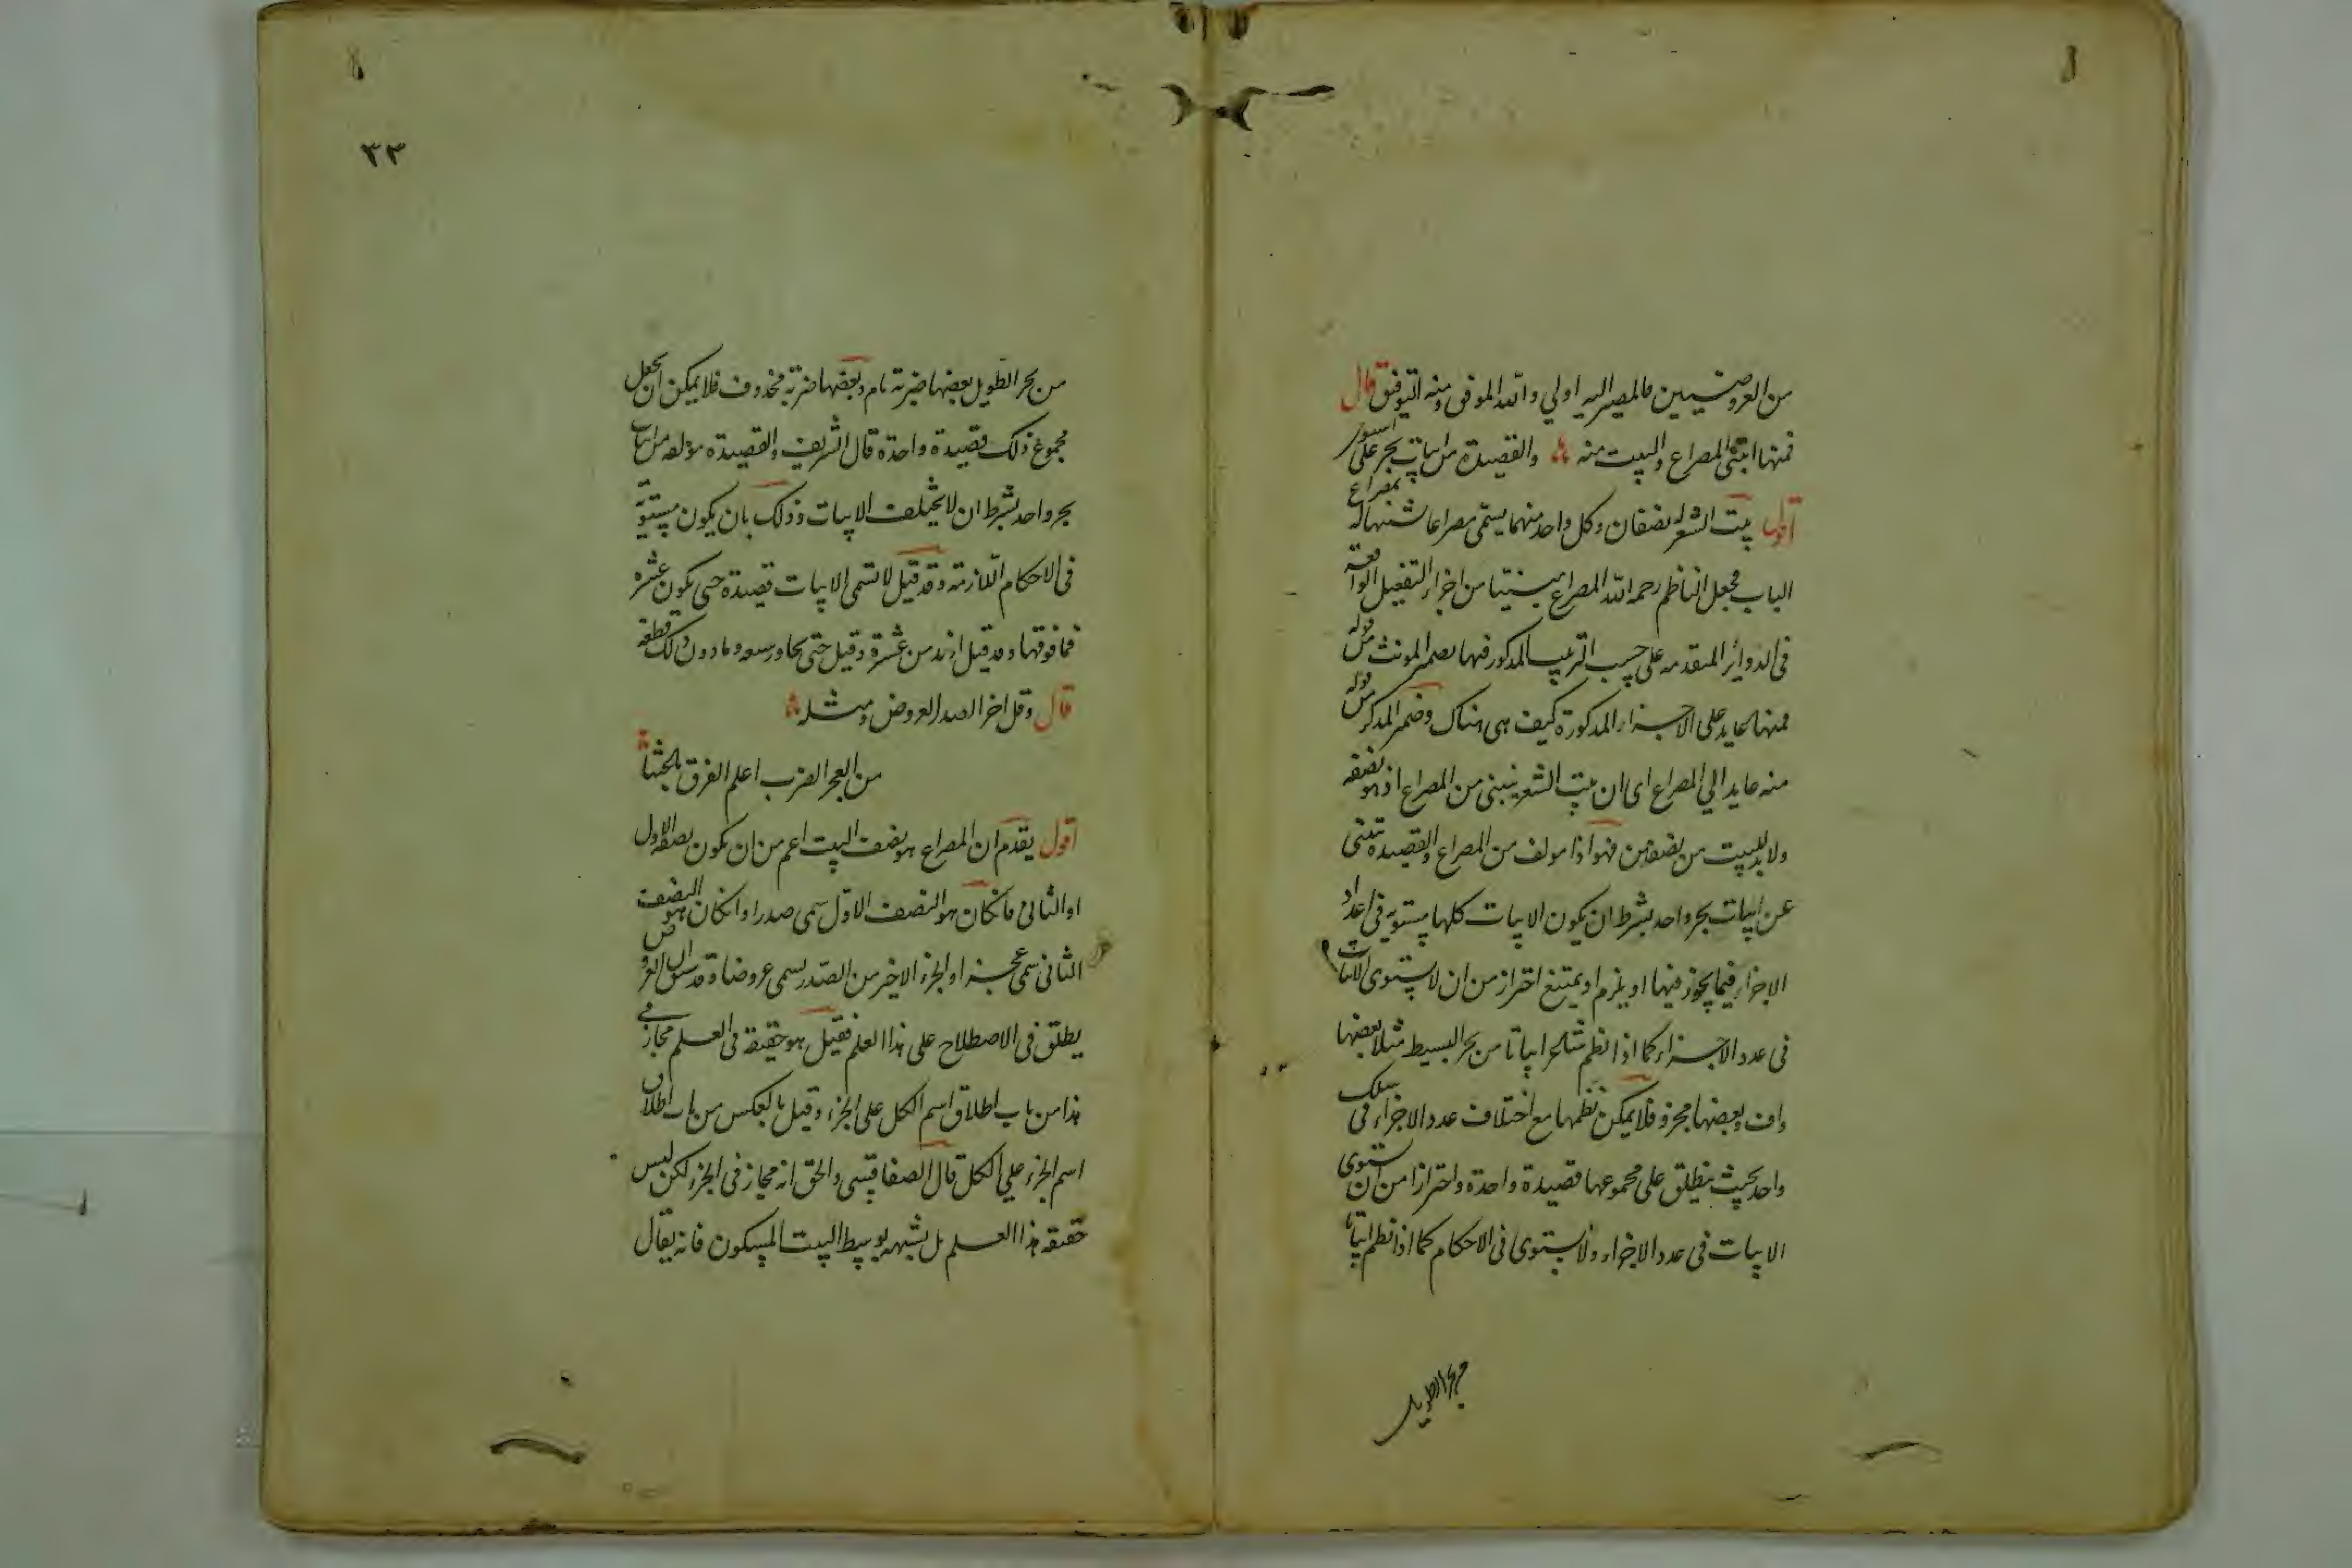 من العروضيين فالمصير اليه اولي والله الموفق ومنه التوفيق قال
فمنها ابتنى المصراع والبيت منه والقصيدة من ابيات بحر على استوا
اقول بيت الشعر له نصفان وكل واحد منهما يسمى مصراعا تشبيها له بمصراع
الباب فجعل الناظم رحمه الله المصراع مبنيا من اجزاء التفعيل الواقعة
فى الدوائر المتقدمه على حسب الترتيب المذكور فيها بضمير المونث من قوله
فمنها عايد على الاجزاء المذكورة كيف هى هناك وضمير المذكر من قوله
منه عايد الي المصراع اى ان بيت الشعر ينبنى من المصراع اذ هو نصفه
ولابد للبيت من نصفين فهو اذا مولف من المصراع والقصيدة تبتنى
عن ابيات بحر واحد بشرط ان يكون الابيات كلها مستويه فى اعداد
الاجزاء فيما يجوز فيها او يلزم او يمتنع احترازا من ان لا يستوى الابيات
فى عدد الاجزاء كما اذا نظم شاعر ابياتا من بحر البسيط مثلا بعضها
واف وبعضها مجزو فلا يمكن نظمها مع اختلاف عدد الاجزاء فى سلك
واحد بحيث ينطلق على مجموعها قصيدة واحدة واحترازا من ان يستوى
الابيات فى عدد الاجزاء ولا يستوى فى الاحكام كما اذا نظم ابياتا
من بحر الطويل
٣٣
من بحر الطويل بعضها ضربه تام وبعضها ضربه محذوف فلا يمكن ان يجعل
مجموع ذلك قصيدة واحدة قال الشريف والقصيدة مولفه من ابيات
بحر واحد بشرط ان لا يختلف الابيات وذلك بان يكون مستوية
فى الاحكام اللازمة وقد قيل لا تسمى الابيات قصيدة حتى يكون عشره
فما فوقها وقد قيل ازيد من عشرة وقيل حتى يجاوز سبعه وما دون ذلك قطعة
قال وقل اخر الصدر العروض ومثله
من العجز الضرب اعلم الفرق بالحثنا
اقول يقدم ان المصراع هو نصف البيت اعم من ان يكون نصفه الاول
او الثانى فان كان هو النصف الاول سمى صدرا وان كان هو النصف
الثانى سمى عجزا والجزء الاخير من الصدر يسمى عروضا وقد سبق ان العروض
يطلق فى الاصطلاح على هذا العلم فقيل هو حقيقة فى العلم مجاز فى
هذا من باب اطلاق اسم الكل على الجزء وقيل بالعكس من باب اطلاق
اسم الجزء علي الكل قال الصفاقسى والحق انه مجاز فى الجزء لكن ليس
حقيقه هذا العلم بل تشبيه بوسط البيت المسكون فانه يقال